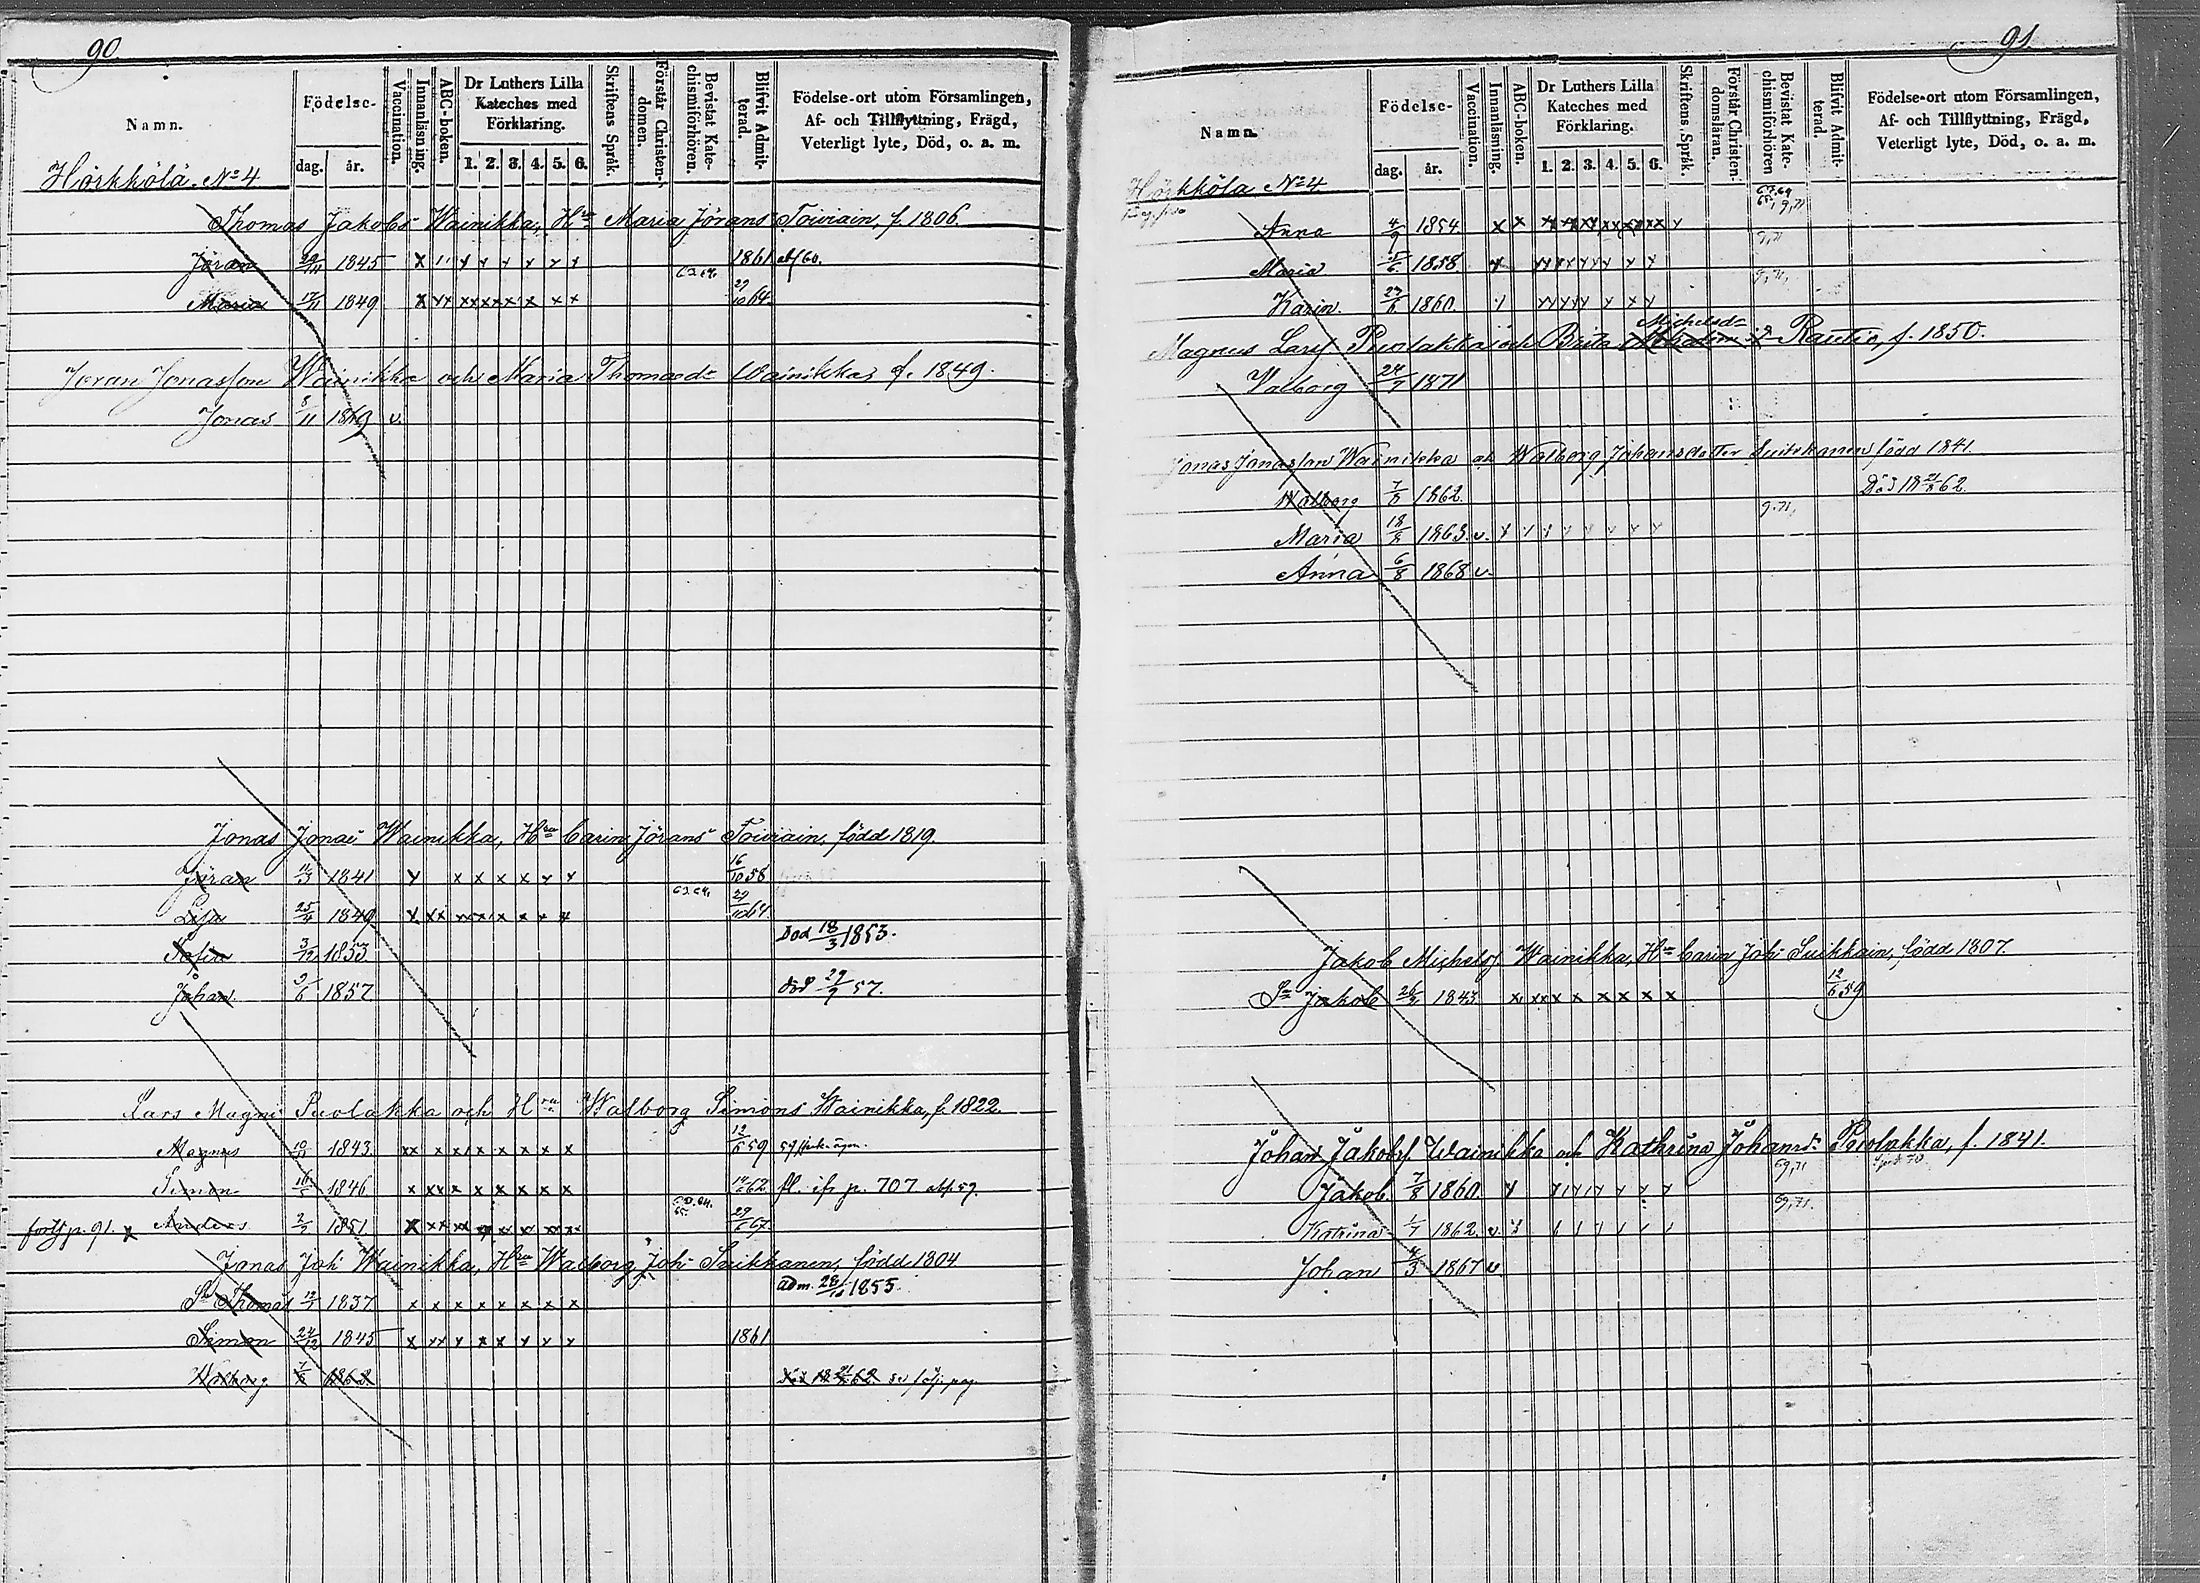 90.
Namn.
Födelse-
dag.
år.
Vaccination.
Innanläsning.
ABC-boken.
Dr Luthers Lilla
Kateches med
Förklaring.
1. 2. 3. 4. 5. 6.
Skriftens Språk.
Förstår Christen-
domen.
Bevistat Kate-
chismiförhören.
Blifvit Admit-
terad.
Födelse-ort utom Församlingen,
Af- och Tillflyttning, Frägd,
Veterligt lyte, Död, o. a. m.
Hörkkölä. No 4
Thomas Jakobs Wainikka, Hru Maria Jörans Toiviain, f. 1806.
Jöran 1845 x " y y y y y y 1861 abf 60.
Maria 1849 x yx xx xx x x x x 63.64. 29/10 64.
Jöran Jonasson Wainikka och Maria Thomasdr Wainikka f. 1849.
Jonas 8/11 1869 v.
Jonas Jonae Wainikka, Hru Carin Jörans Toiviain, född 1819.
Jöran 1841 y x x x x y y 16/10 58
Lisa 25/4 1849 x xx x x x x x x 63.64. 29/10 64.
Sofia 3/12 1853 Död 18/3 1853.
Johan 5/6 1857 död 29/9 57.
Lars Magni Puolakka och Hru Walborg Simons Wainikka, f. 1822.
Magnus 1843 xx x x x x x x x 12/6 59
Simon 1846 x xx x x x x x x 62. fl. p. 707. abf. 59.
forts p. 91. x Anders 2/2 1851. x xx xx x xx xx xx xx 63.64. 65. 29/6 67.
Jonas Joh Wainikka, Hru Walborg Joh Suikkanen, född 1804
Sn Thomas 1837 x x x x x x x x adm. 28/10 1855.
Simon 24/12 1845 x xx y x x y y y 1861
Walborg 7/8 1862 Död 18 21/8 62.
91
Namn.
Födelse-
dag.
år.
Vaccination.
Innanläsning.
ABC-boken.
Dr Luthers Lilla
Kateches med
Förklaring.
1. 2. 3. 4. 5. 6.
Skriftens Språk.
Förstår Christen-
domsläran.
Bevistat Kate-
chismiförhören
Blifvit Admit-
terad.
Födelse-ort utom Församlingen,
Af- och Tillflyttning, Frägd,
Veterligt lyte, Död, o. a. m.
Hörkkölä No 4.
Anna 4/9 1854 x x
Maria 1858. y
Karin. 1860. y
Magnus Larsf Puolakka och Brita Michelsdr Rautia, f. 1850.
Walborg 24/7 1871
Jonas Jonasson Wainikka och Walborg Johansdotter Suikkanen född 1841.
Walborg 7/8 1862. Död 18 21/8 62.
Maria 18/8 1863 v. y y y y y y y y 9.71.
Anna 6/8 1868 v.
Jakob Michelsf Wainikka, Hru Carin Joh Suikkain, född 1807.
Sn Jakob 1843. x xx x x x x x x 12/6 59
Johan Jakobsf Wainikka och Kathrina Johansdr Puolakka, f. 1841.
Jakob. 7/8 1860. y y y y y y y 69,71
Katrina 1/7 1862. v. 69,71.
Johan 4/3 1867 v.